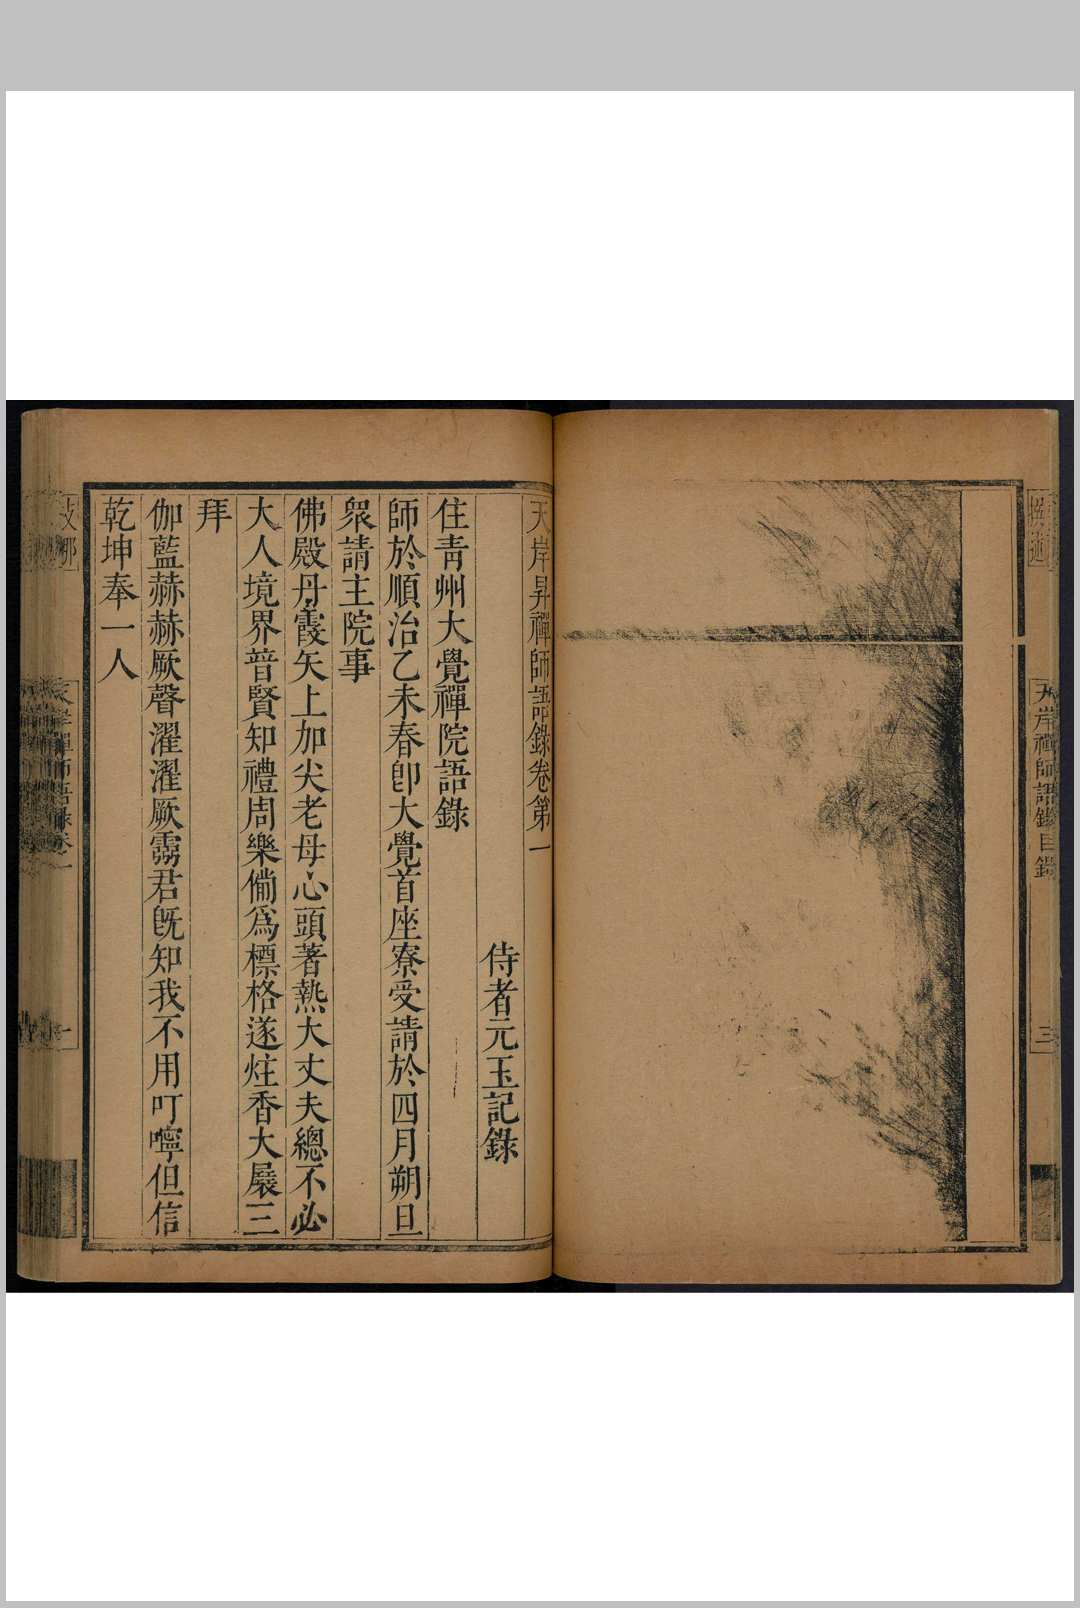 天岸禪師語錄目錄
三
天岸昇禪師語錄卷第一
侍者元玉記錄
住青州大覺禪院語錄
師於順治乙未春卽大覺首座寮受請於四月朔旦
衆請主院事
佛殿丹霞矢上加尖老母心頭著熱大丈夫總不必
大人境界普賢知禮周樂倘爲標格遂炷香大展三
拜
伽藍赫赫厥聲濯濯厥靈君旣知我不用叮嚀但信
乾坤奉一人
天岸禪師語錄卷一